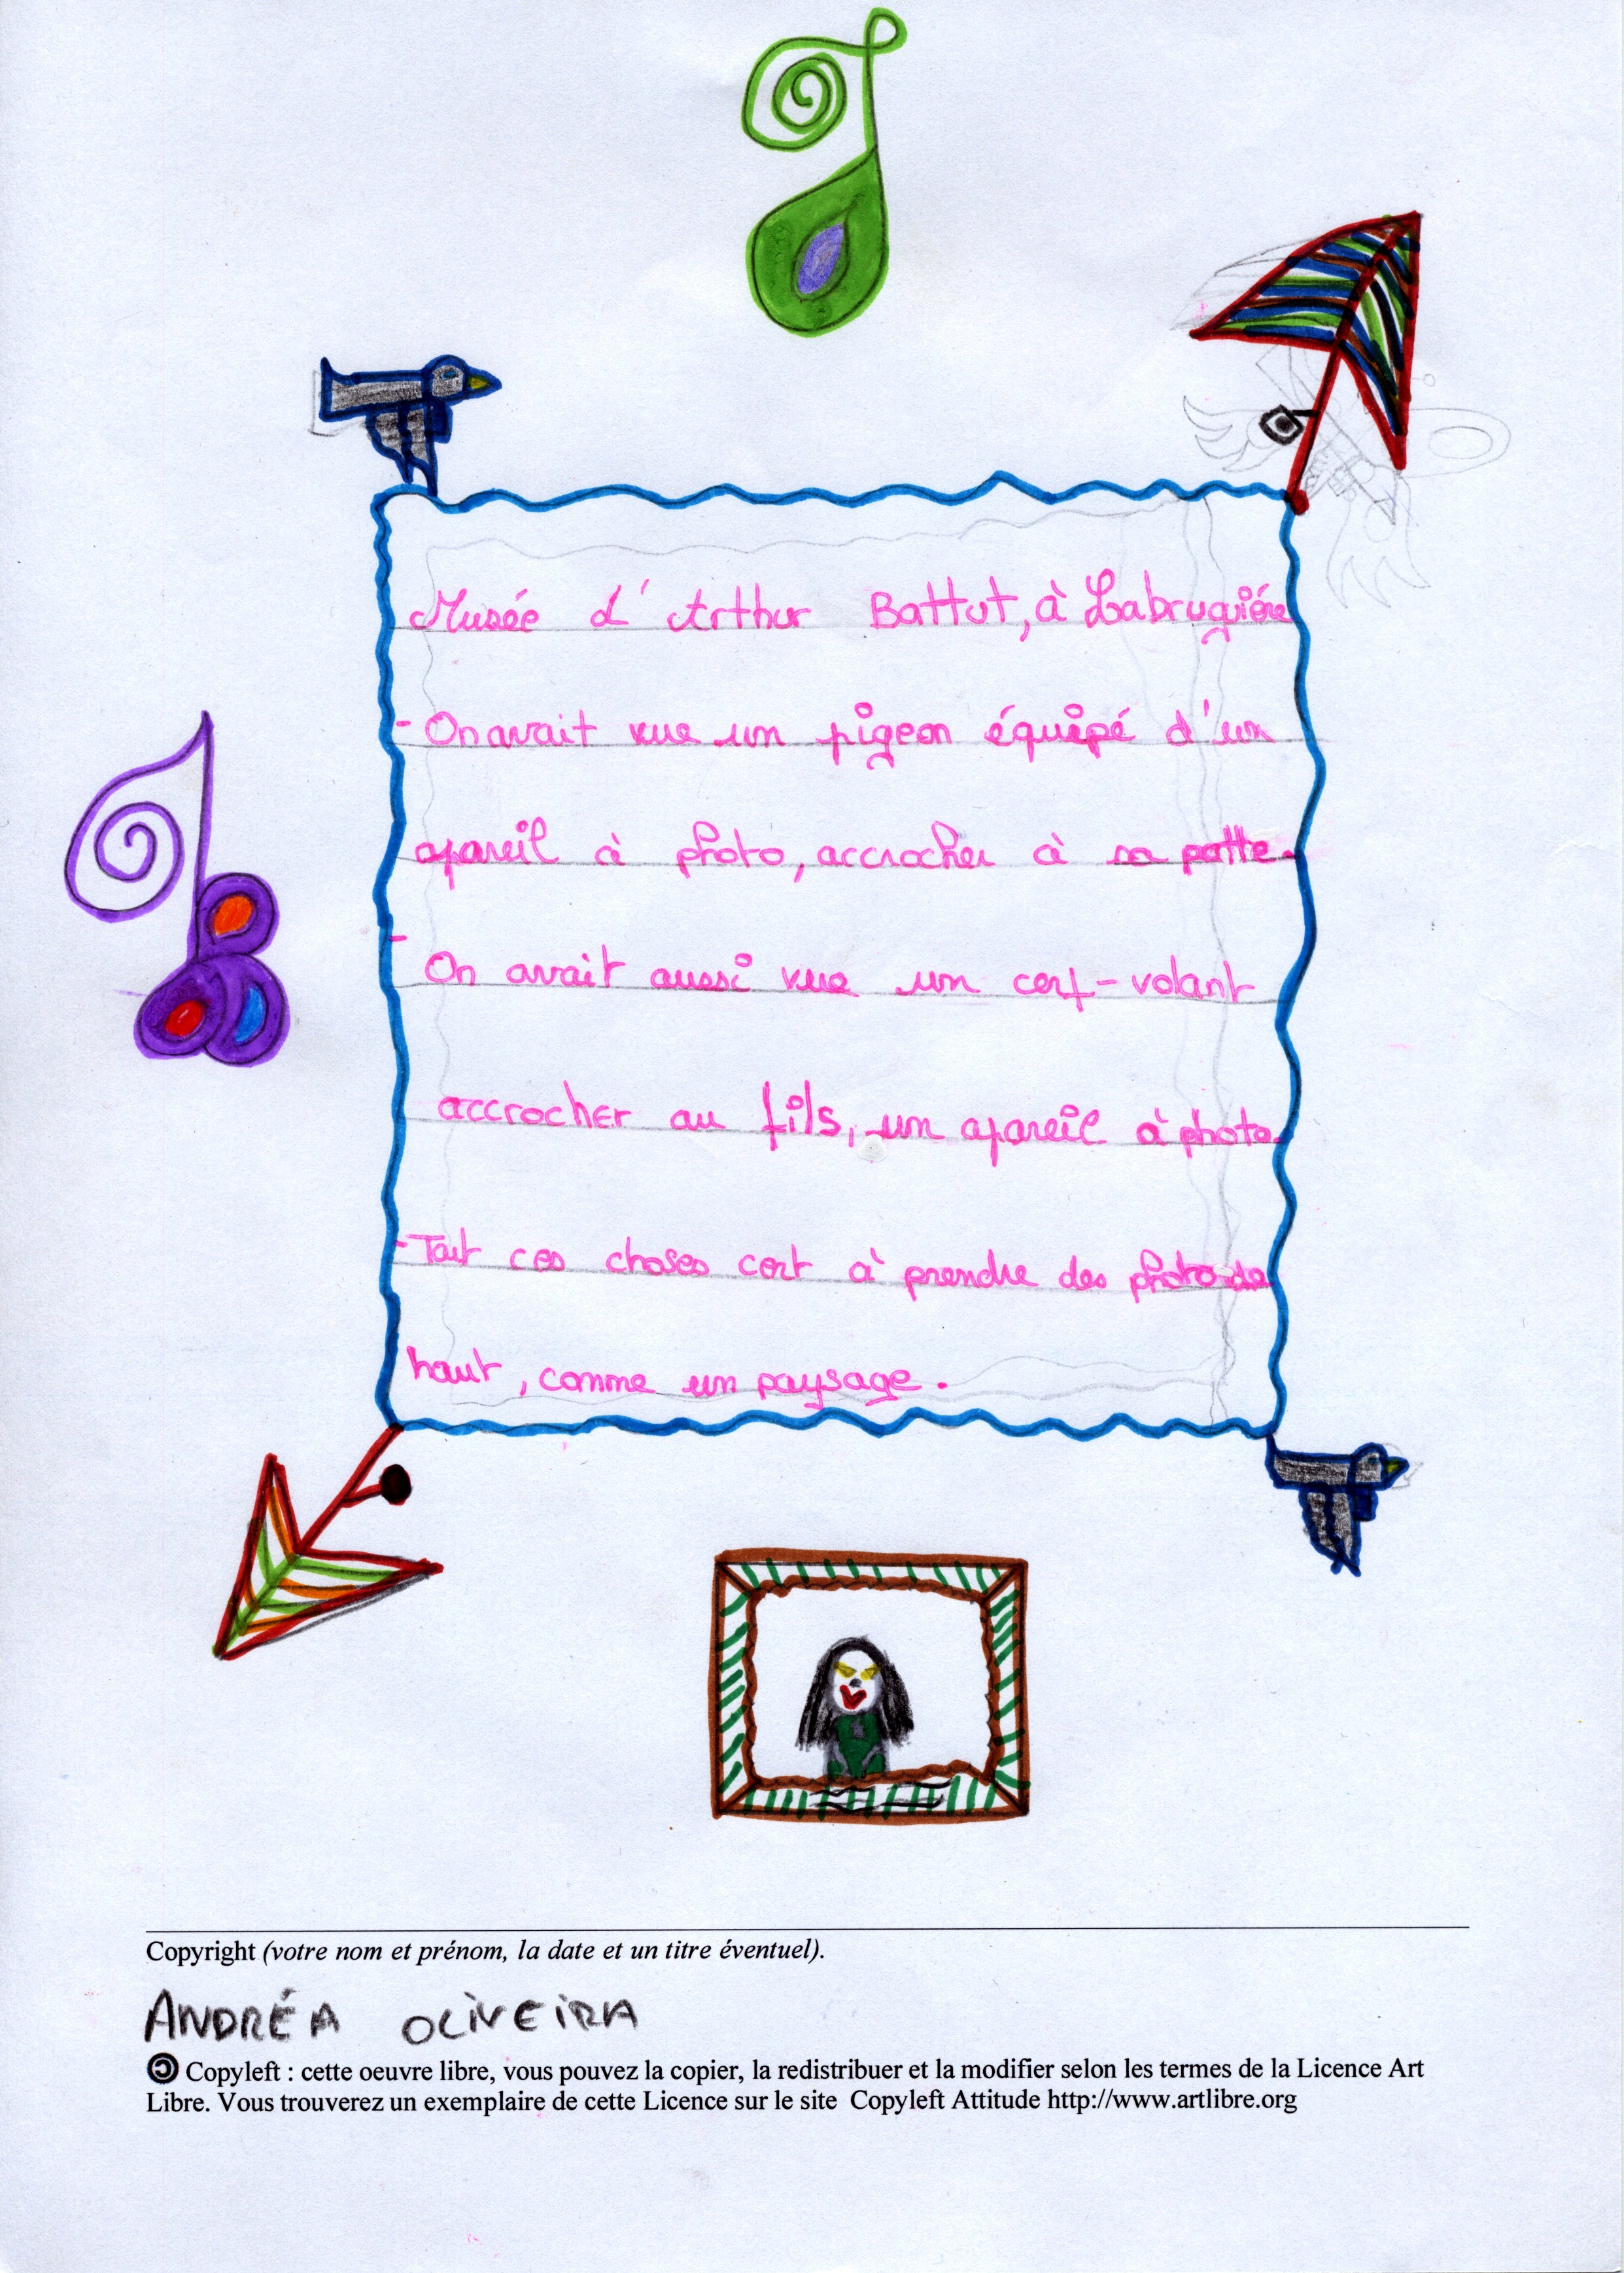 Musée d'Arthur Battut, à Labruguiére
- On avait vue un pigeon équipé d'un
apareil à photo, accrocher à sa patte.
- On avait aussi vue un cerf-volant
accrocher au fils, un apareil à photo.
- Tout ces choses cert à prendre des photo de
haut, comme un paysage.
Copyright (votre nom et prénom, la date et un titre éventuel).
ANDRÉA OLIVEIRA
Copyleft : cette oeuvre libre, vous pouvez la copier, la redistribuer et la modifier selon les termes de la Licence Art
Libre. Vous trouverez un exemplaire de cette Licence sur le site Copyleft Attitude http://www.artlibre.org